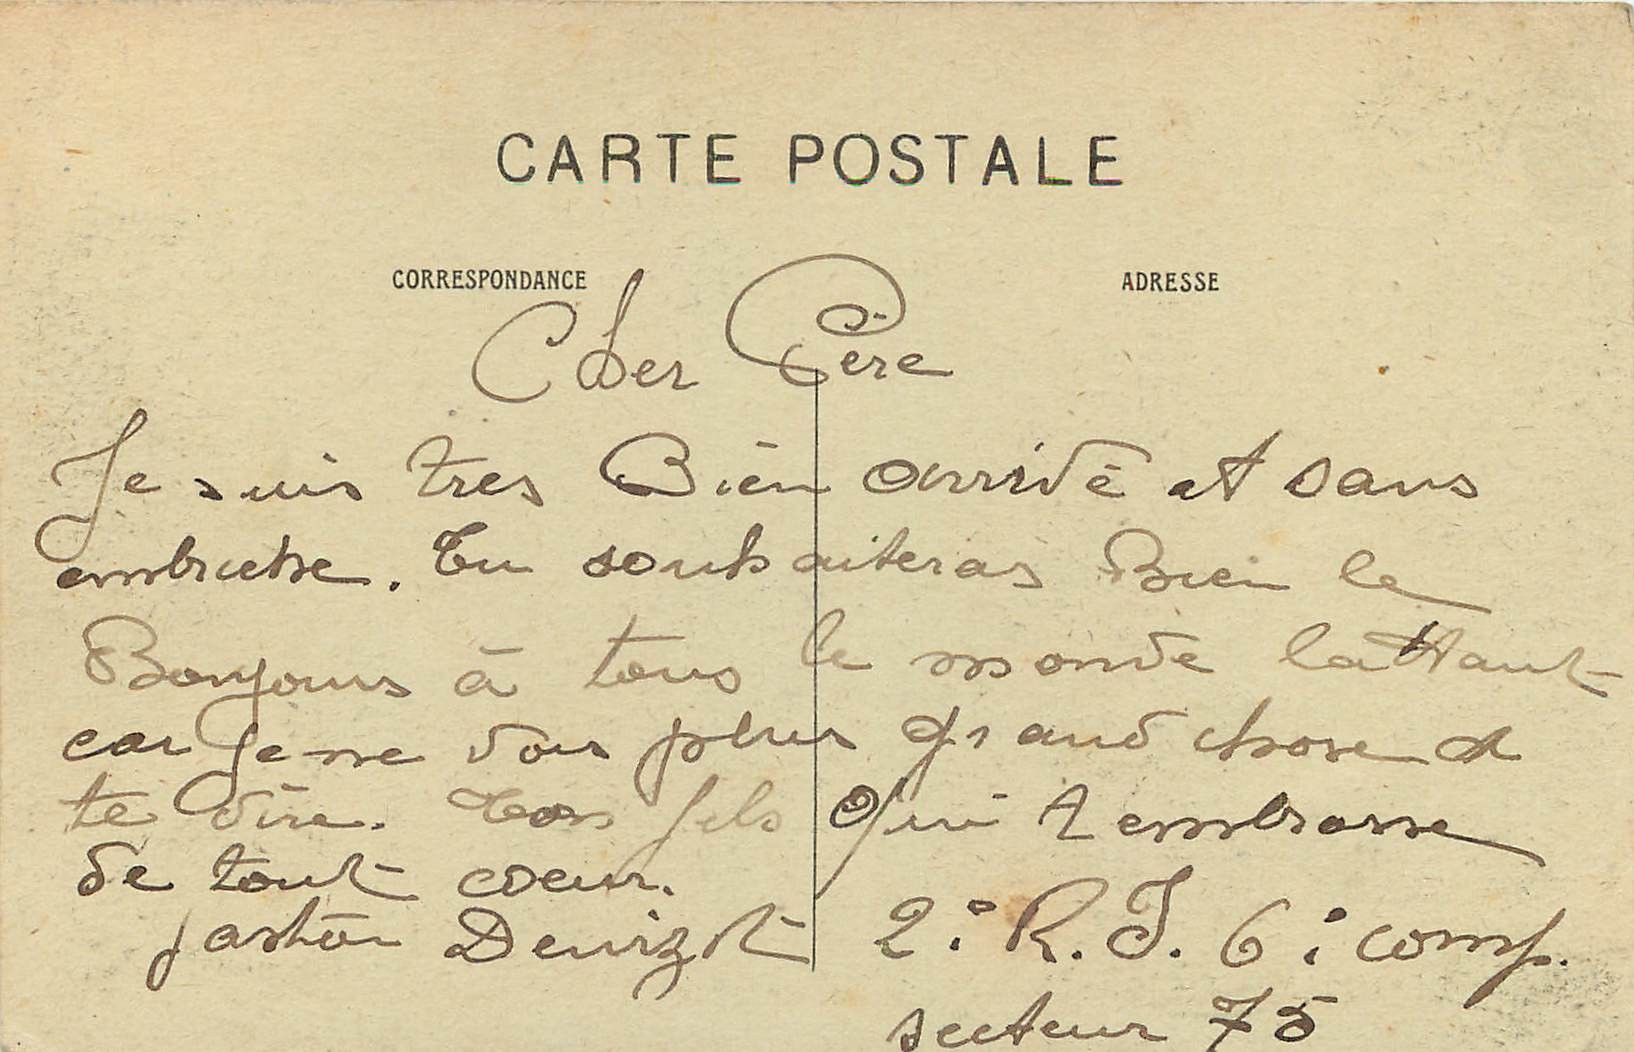 CARTE POSTALE
CORRESPONDANCE
ADRESSE
Cher Père
Je suis tres Bien arrivé et sans
embuche. Tu souhaiteras Bien le
Bonjours à tous le monde la Haut
car je ne vois plus grand chose a
te dire. Ton fils Qui t embrasse
de tout coeur.
gaston Denizot 2: R. I. 6: comp.
secteur 75